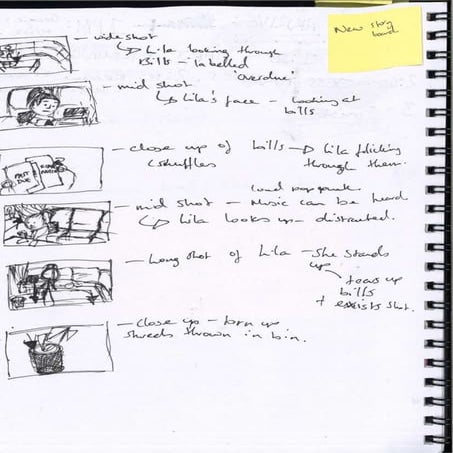 New story
board
- wide shot
↳ Lila looking through
Bills - labelled
'overdue'
- mid shot
↳ Lila's face - looking at
bills
- close up of bills → Lila flicking
(shuffles through them.
PAST
DUE
loud pop punk
- mid shot - Music can be heard
↳ Lila looks up - distracted.
- Long shot of Lila - she stands
up
tears up
bills
+ exists shot.
- close up - torn up
shreds thrown in bin.